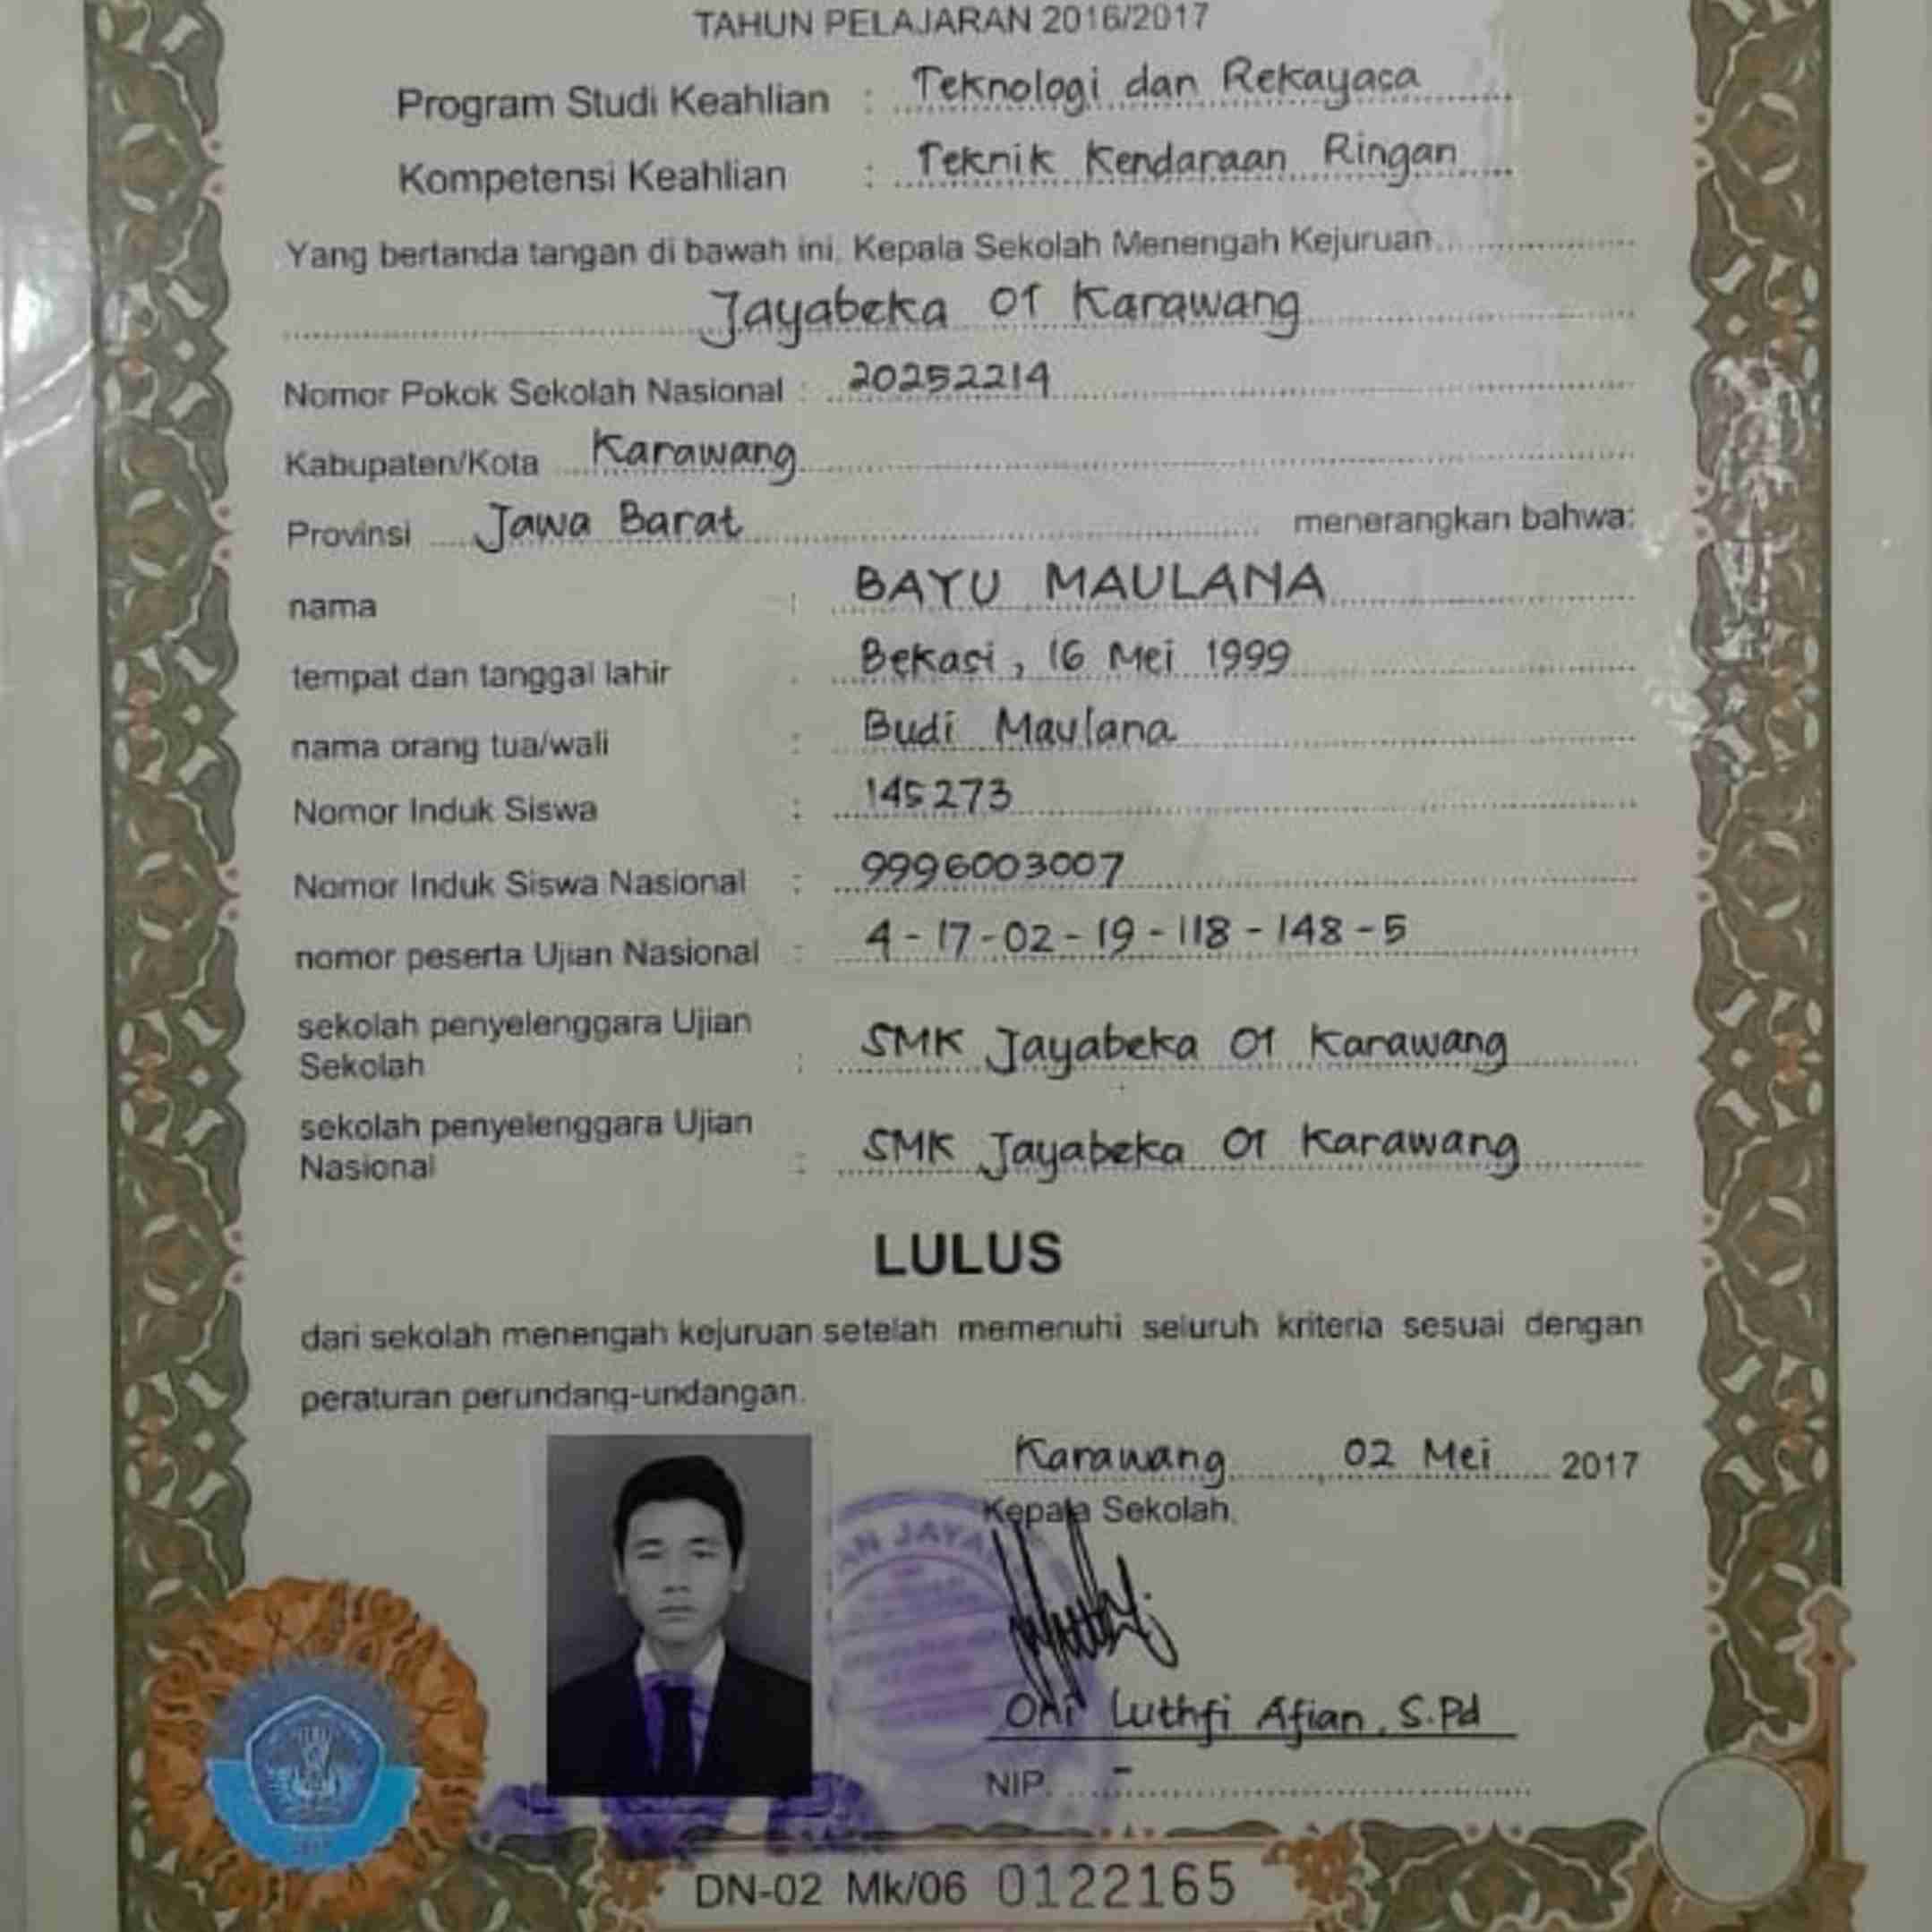 TAHUN PELAJARAN 2016/2017
Program Studi Keahlian : Teknologi dan Rekayasa
Kompetensi Keahlian : Teknik Kendaraan Ringan
Yang bertanda tangan di bawah ini, Kepala Sekolah Menengah Kejuruan
Jayabeka 01 Karawang
Nomor Pokok Sekolah Nasional : 20252214
Kabupaten/Kota Karawang
Provinsi Jawa Barat menerangkan bahwa:
nama : BAYU MAULANA
tempat dan tanggal lahir : Bekasi, 16 Mei 1999
nama orang tua/wali : Budi Maulana
Nomor Induk Siswa : 145273
Nomor Induk Siswa Nasional : 9996003007
nomor peserta Ujian Nasional : 4-17-02-19-118-148-5
sekolah penyelenggara Ujian
Sekolah : SMK Jayabeka 01 Karawang
sekolah penyelenggara Ujian
Nasional : SMK Jayabeka 01 Karawang
LULUS
dari sekolah menengah kejuruan setelah memenuhi seluruh kriteria sesuai dengan
peraturan perundang-undangan.
Karawang, 02 Mei 2017
Kepala Sekolah,
AN JAYA
Oni Luthfi Afian, S.Pd
NIP. -
DN-02 Mk/06 0122165